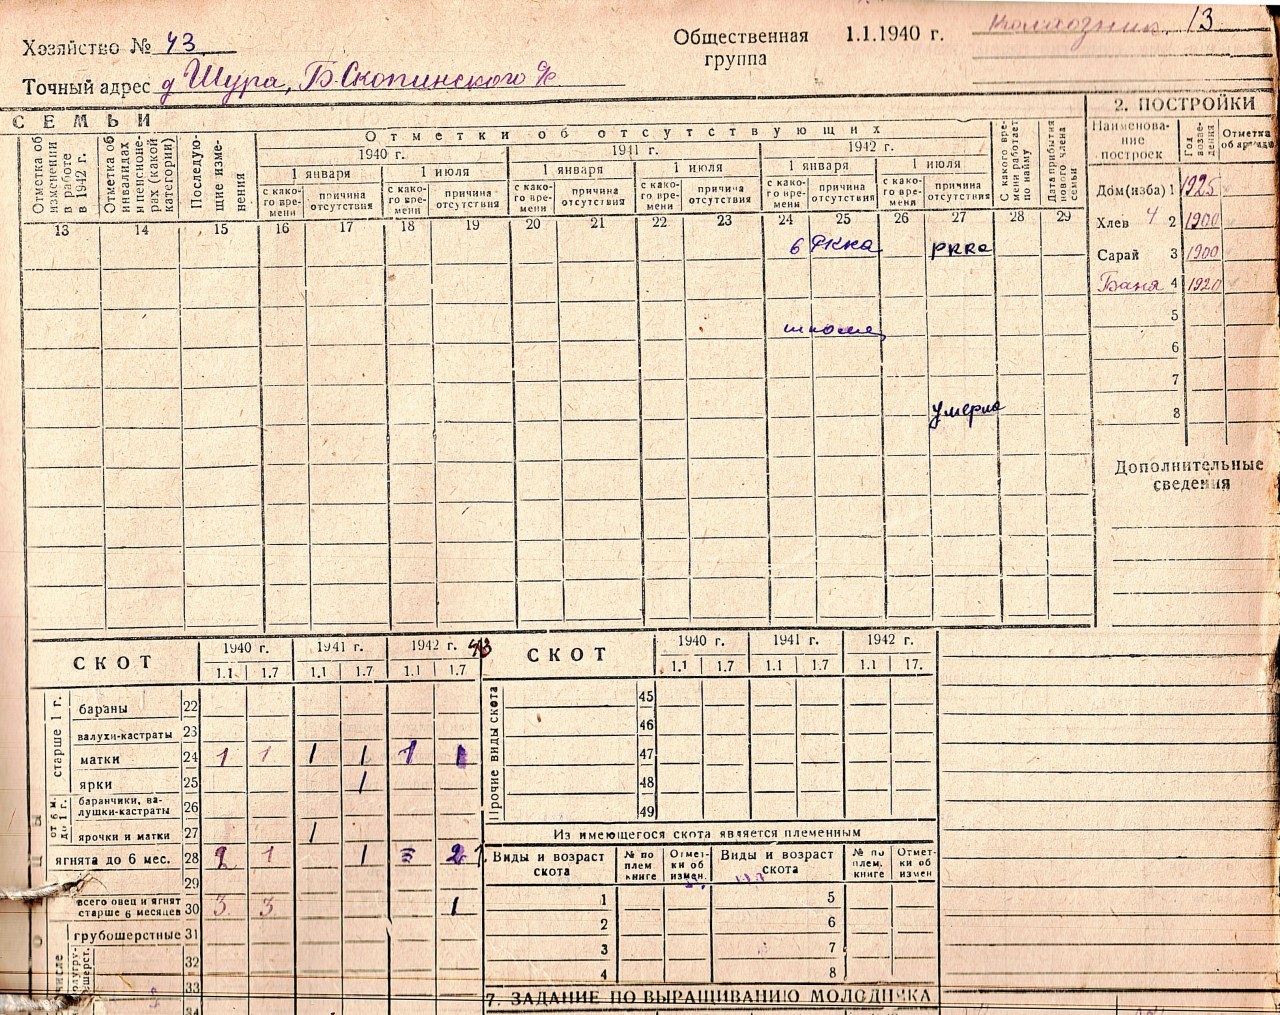 Хозяйство № 43
Общественная группа 1.1.1940 г. Колхозник. 13
Точный адрес д Шура, Б-Скопинского с/с
СЕМЬИ
2. ПОСТРОЙКИ
Отметки об отсутствующих
Отметка об изменении в работе в 1942 г.
Отметка об инвалидах и пенсионерах (какой категории)
Последующие изменения
1940 г. 1941 г. 1942 г.
1 января 1 июля 1 января 1 июля 1 января 1 июля
с какого времени причина отсутствия с какого времени причина отсутствия с какого времени причина отсутствия с какого времени причина отсутствия с какого времени причина отсутствия с какого времени причина отсутствия
С какого времени работает по найму
Дата прибытия нового члена семьи
13 14 15 16 17 18 19 20 21 22 23 24 25 26 27 28 29
в РККА РККА
школе
умерла
Наименование построек Год возведения Отметка об
Дом (изба) 1 1925
Хлев 4 2 1900
Сарай 3 1900
Баня 4 1920
5
6
7
8
Дополнительные сведения
СКОТ 1940 г. 1941 г. 1942 г.
1.1 1.7 1.1 1.7 1.1 1.7
старше 1 г.
бараны 22
валухи-кастраты 23
матки 24 1 1 1 1 1 1
ярки 25 1
от 6 м. до 1 г.
баранчики, валушки-кастраты 26
ярочки и матки 27 1
ягнята до 6 мес. 28 2 1 1 2 1
29
всего овец и ягнят старше 6 месяцев 30 3 3 1
грубошерстные 31
32
33
34
СКОТ 1940 г. 1941 г. 1942 г.
1.1 1.7 1.1 1.7 1.1 17.
Прочие виды скота
45
46
47
48
49
Из имеющегося скота является племенным
Виды и возраст скота № по плем. книге Отметки об измен. Виды и возраст скота № по плем. книге Отметки об измен
1 5
2 6
3 7
4 8
7. ЗАДАНИЕ ПО ВЫРАЩИВАНИЮ МОЛОДНЯКА